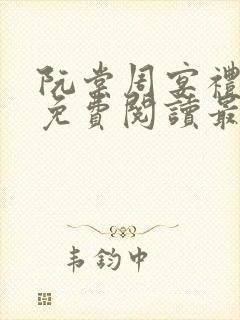 阮棠周宴禮
免費閱讀最
韦鈞中